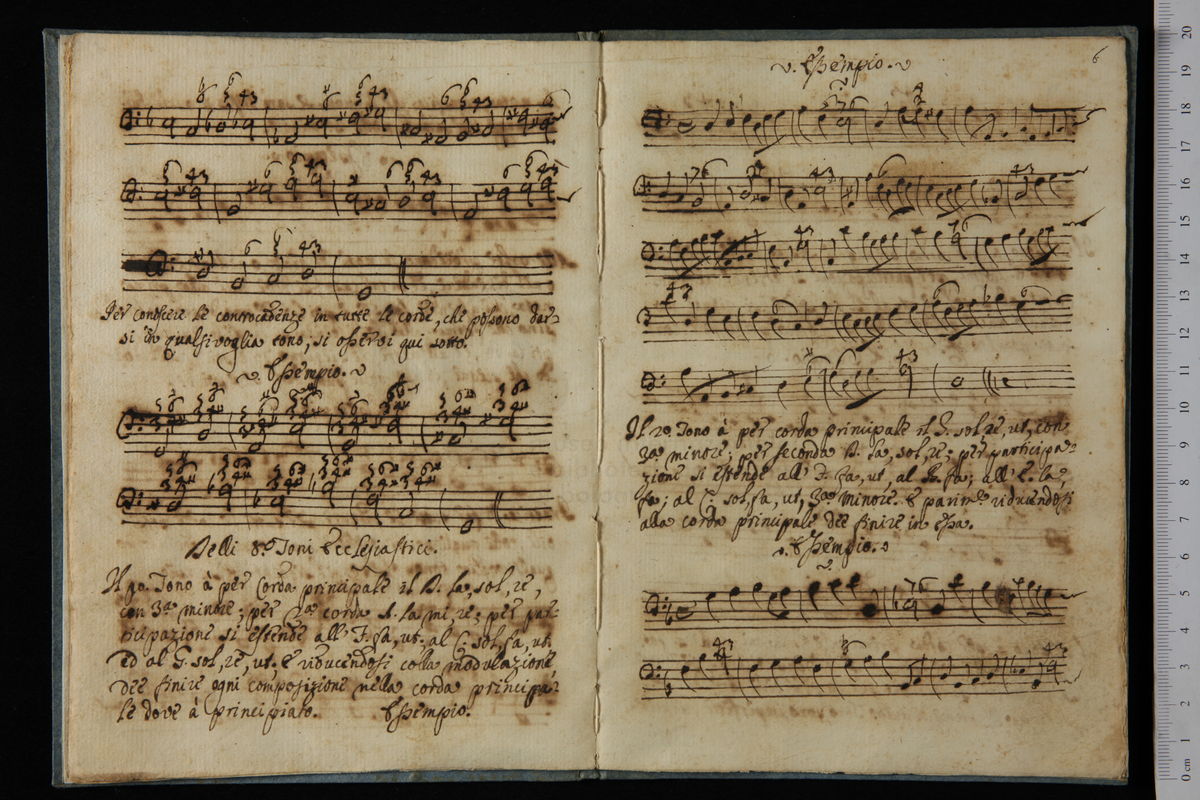 Per conoscere le controcadenze in tutte le corde, che possono dar-
si in qualsivoglia tono, si osservi qui sotto.
Essempio.
Delli 8.º Toni Ecclesiastici.
Il po. Tono à per Corda principale il D. la, sol, re,
con 3ª minore; per 2ª corda A. la, mi, re; per par-
ticipazione si estende all' F. fa, ut. al C. sol, fa, ut.
ed al G. sol, re, ut. E riducendosi colla modulazione,
dee finire ogni composizione nella corda principa-
le dove à principiato. Essempio.
6
Essempio.
Il 2o. Tono à per corda principale il G. sol re, ut, con
3ª minore; per seconda D. la, sol, re; per participa-
zione si estende all' F. fa, ut, al B. fa; all' E. la,
fa; al C. sol, fa, ut, 3ª minore. E parimte riducendosi
alla corda principale dee finire in essa.
Essempio.
20
19
18
17
16
15
14
13
12
11
10
9
8
7
6
5
4
3
2
1
0 cm